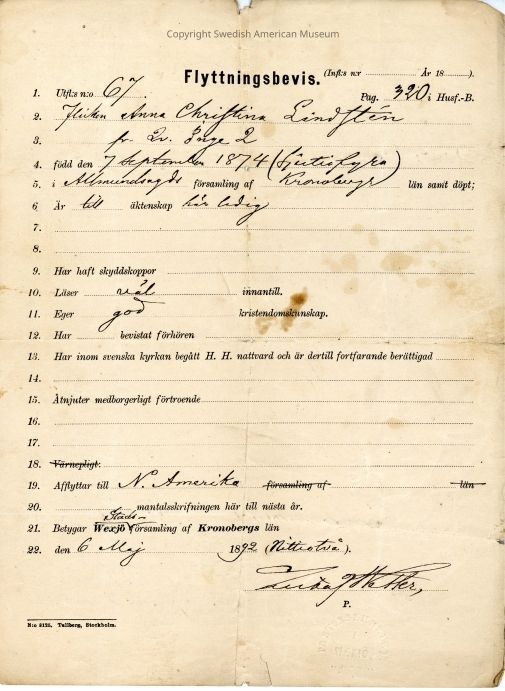 Copyright Swedish American Museum
Flyttningsbevis. (Infl:s n:r År 18 ).
1. Utfl:s n:o 67. Pag. 320 i Husf.-B.
2. Flickan Anna Christina Lindstén
3. fr. Qv. Inge 2
4. född den 7 September 1874 (Sjutiofyra)
5. i församling af Kronobergs län samt döpt;
6. Är till äktenskap här ledig
7.
8.
9. Har haft skyddskoppor
10. Läser väl innantill.
11. Eger god kristendomskunskap.
12. Har bevistat förhören
13. Har inom svenska kyrkan begått H. H. nattvard och är dertill fortfarande berättigad
14.
15. Åtnjuter medborgerligt förtroende
16.
17.
18. Värnepligt.
19. Afflyttar till N. Amerika församling af län
20. mantalsskrifningen här till nästa år.
Stads-
21. Betygar Wexjö församling af Kronobergs län
22. den 6 Maj 1892 (Nittiotvå).
P.
N:o 8125. Tullberg, Stockholm.